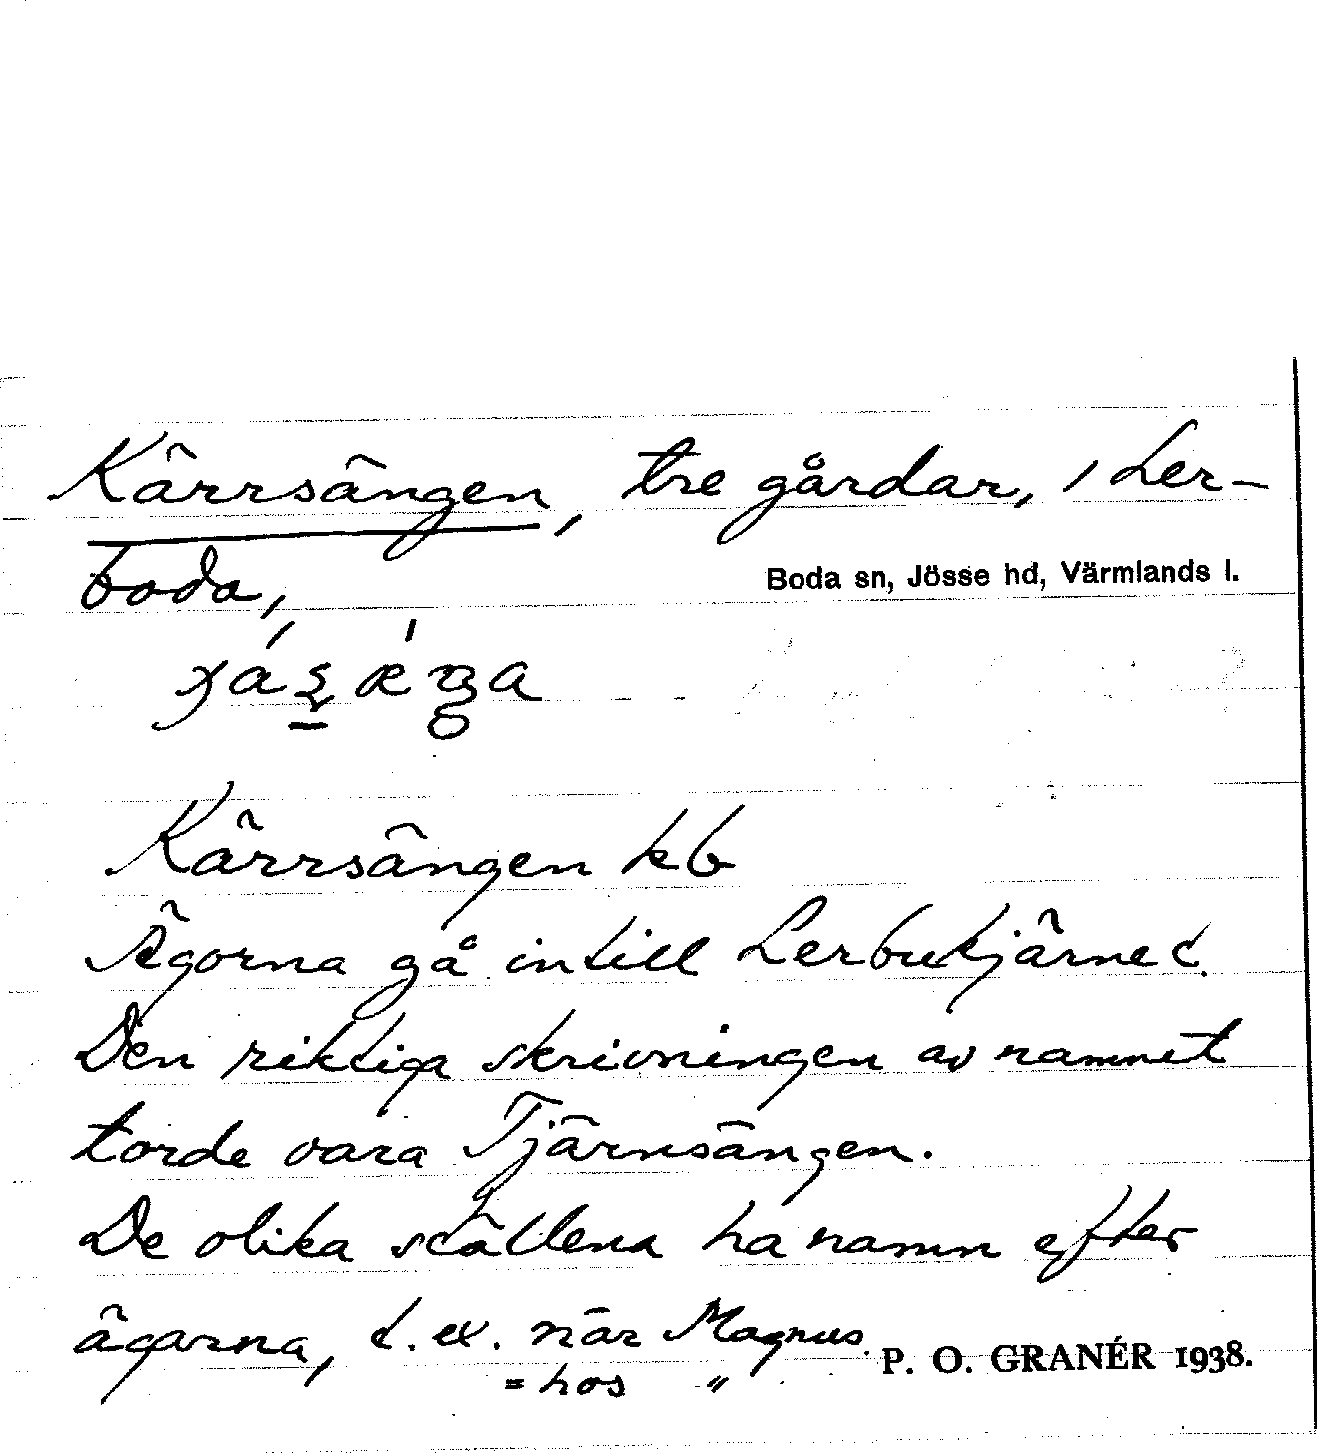 Kärrsängen, tre gårdar, i Ler-
boda,
Boda sn, Jösse hd, Värmlands l.
Kärrsängen kb
Ägorna gå intill Lerbutjärnet.
Den riktiga skrivningen av namnet
torde vara Tjärnsängen.
De olika ställena ha namn efter
ägarna, t. ex. när Magnus.
= hos "
P. O. GRANÉR 1938.